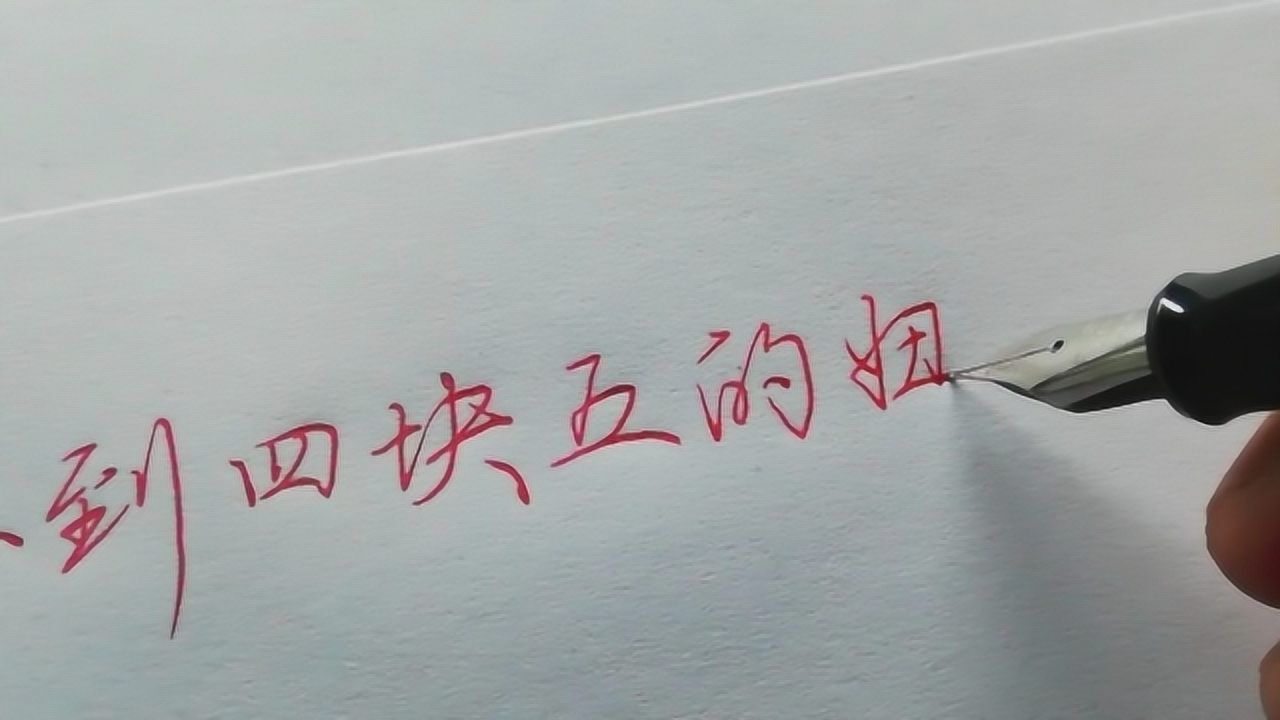 到四块五的姻